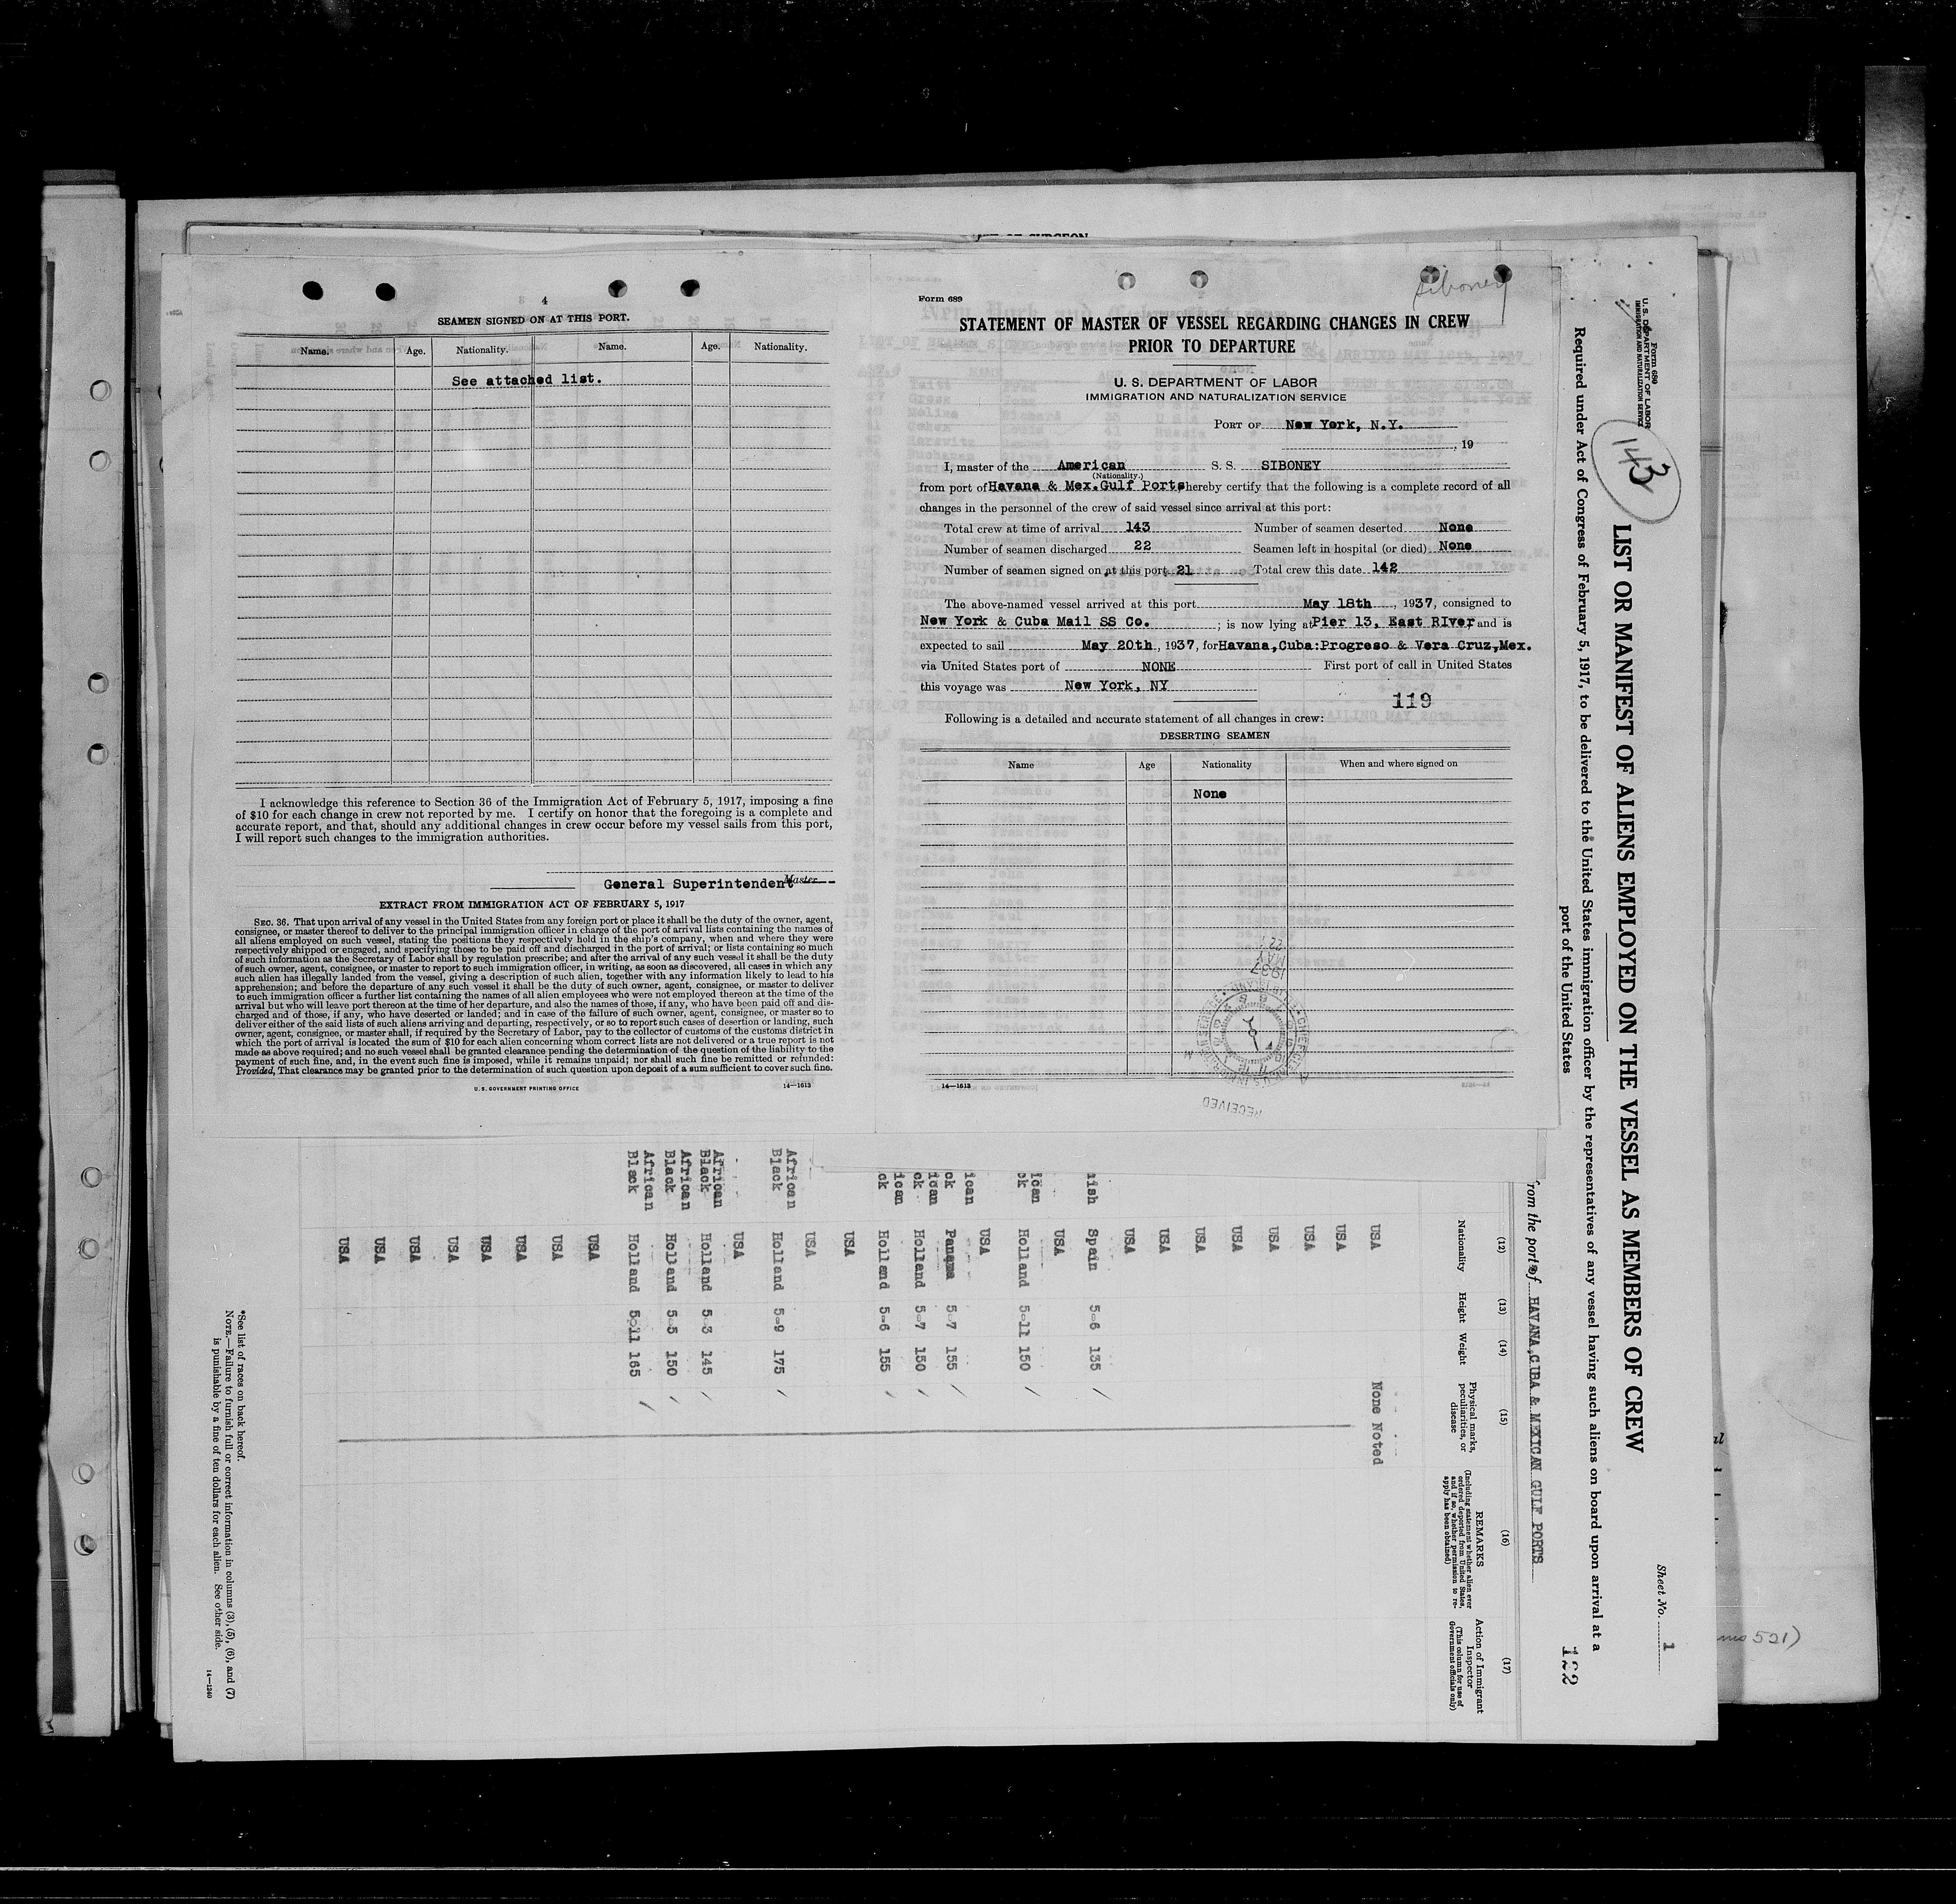 4
SEAMEN SIGNED ON AT THIS PORT.
Name. Age. Nationality. Name. Age. Nationality.
See attached list.
I acknowledge this reference to Section 36 of the Immigration Act of February 5, 1917, imposing a fine
of $10 for each change in crew not reported by me. I certify on honor that the foregoing is a complete and
accurate report, and that, should any additional changes in crew occur before my vessel sails from this port,
I will report such changes to the immigration authorities.
General Superintendent Master
EXTRACT FROM IMMIGRATION ACT OF FEBRUARY 5, 1917
SEC. 36. That upon arrival of any vessel in the United States from any foreign port or place it shall be the duty of the owner, agent,
consignee, or master thereof to deliver to the principal immigration officer in charge of the port of arrival lists containing the names of
all aliens employed on such vessel, stating the positions they respectively hold in the ship's company, when and where they were
respectively shipped or engaged, and specifying those to be paid off and discharged in the port of arrival; or lists containing so much
of such information as the Secretary of Labor shall by regulation prescribe; and after the arrival of any such vessel it shall be the duty
of such owner, agent, consignee, or master to report to such immigration officer, in writing, as soon as discovered, all cases in which any
such alien has illegally landed from the vessel, giving a description of such alien, together with any information likely to lead to his
apprehension; and before the departure of any such vessel it shall be the duty of such owner, agent, consignee, or master to deliver
to such immigration officer a further list containing the names of all alien employees who were not employed thereon at the time of the
arrival but who will leave port thereon at the time of her departure, and also the names of those, if any, who have been paid off and dis-
charged and of those, if any, who have deserted or landed; and in case of the failure of such owner, agent, consignee, or master so to
deliver either of the said lists of such aliens arriving and departing, respectively, or so to report such cases of desertion or landing, such
owner, agent, consignee, or master shall, if required by the Secretary of Labor, pay to the collector of customs of the customs district in
which the port of arrival is located the sum of $10 for each alien concerning whom correct lists are not delivered or a true report is not
made as above required; and no such vessel shall be granted clearance pending the determination of the question of the liability to the
payment of such fine, and, in the event such fine is imposed, while it remains unpaid; nor shall such fine be remitted or refunded:
Provided, That clearance may be granted prior to the determination of such question upon deposit of a sum sufficient to cover such fine.
U. S. GOVERNMENT PRINTING OFFICE 14—1613
Siboney
Form 689
STATEMENT OF MASTER OF VESSEL REGARDING CHANGES IN CREW
PRIOR TO DEPARTURE
U. S. DEPARTMENT OF LABOR
IMMIGRATION AND NATURALIZATION SERVICE
PORT OF New York, N.Y.
, 19
I, master of the American S. S. SIBONEY
(Nationality.)
from port of Havana & Mex.Gulf Ports hereby certify that the following is a complete record of all
changes in the personnel of the crew of said vessel since arrival at this port:
Total crew at time of arrival 143 Number of seamen deserted None
Number of seamen discharged 22 Seamen left in hospital (or died) None
Number of seamen signed on at this port 21 Total crew this date 142
The above-named vessel arrived at this port May 18th , 1937, consigned to
New York & Cuba Mail SS Co. ; is now lying at Pier 13, East RIver and is
expected to sail May 20th , 1937, for Havana,Cuba:Progreso & Vera Cruz,Mex.
via United States port of NONE First port of call in United States
this voyage was New York, NY
119
Following is a detailed and accurate statement of all changes in crew:
DESERTING SEAMEN
Name Age Nationality When and where signed on
None
1937
MAY
22
RECEIVED
14—1613
Form 689
U. S. DEPARTMENT OF LABOR
IMMIGRATION AND NATURALIZATION SERVICE
143
Sheet No. 1
LIST OR MANIFEST OF ALIENS EMPLOYED ON THE VESSEL AS MEMBERS OF CREW
Required under Act of Congress of February 5, 1917, to be delivered to the United States immigration officer by the representatives of any vessel having such aliens on board upon arrival at a
port of the United States
122
from the port of HAVANA,CUBA & MEXICAN GULF PORTS
(12) (13) (14) (15) (16) (17)
Nationality Height Weight Physical marks, peculiarities, or disease
REMARKS
(Including statement whether alien ever
ordered deported from United States,
and if so, whether permission to re-
apply has been obtained)
Action of Immigrant
Inspector
(This column for use of
Government officials only)
USA None Noted
USA
USA
USA
USA
USA
USA
USA
nish Spain 5-6 135
USA
ican
ck Holland 5-11 150
USA
ican
ck Panama 5-7 155
ican
ck Holland 5-7 150
ican
ck Holland 5-6 155
USA
USA
African
Black Holland 5-9 175
USA
African
Black Holland 5-3 145
African
Black Holland 5-5 150
African
Black Holland 5-11 165
USA
USA
USA
USA
USA
USA
USA
USA
*See list of races on back hereof.
NOTE.—Failure to furnish full or correct information in columns (3), (5), (6), and (7)
is punishable by a fine of ten dollars for each alien. See other side.
14—1240
521)